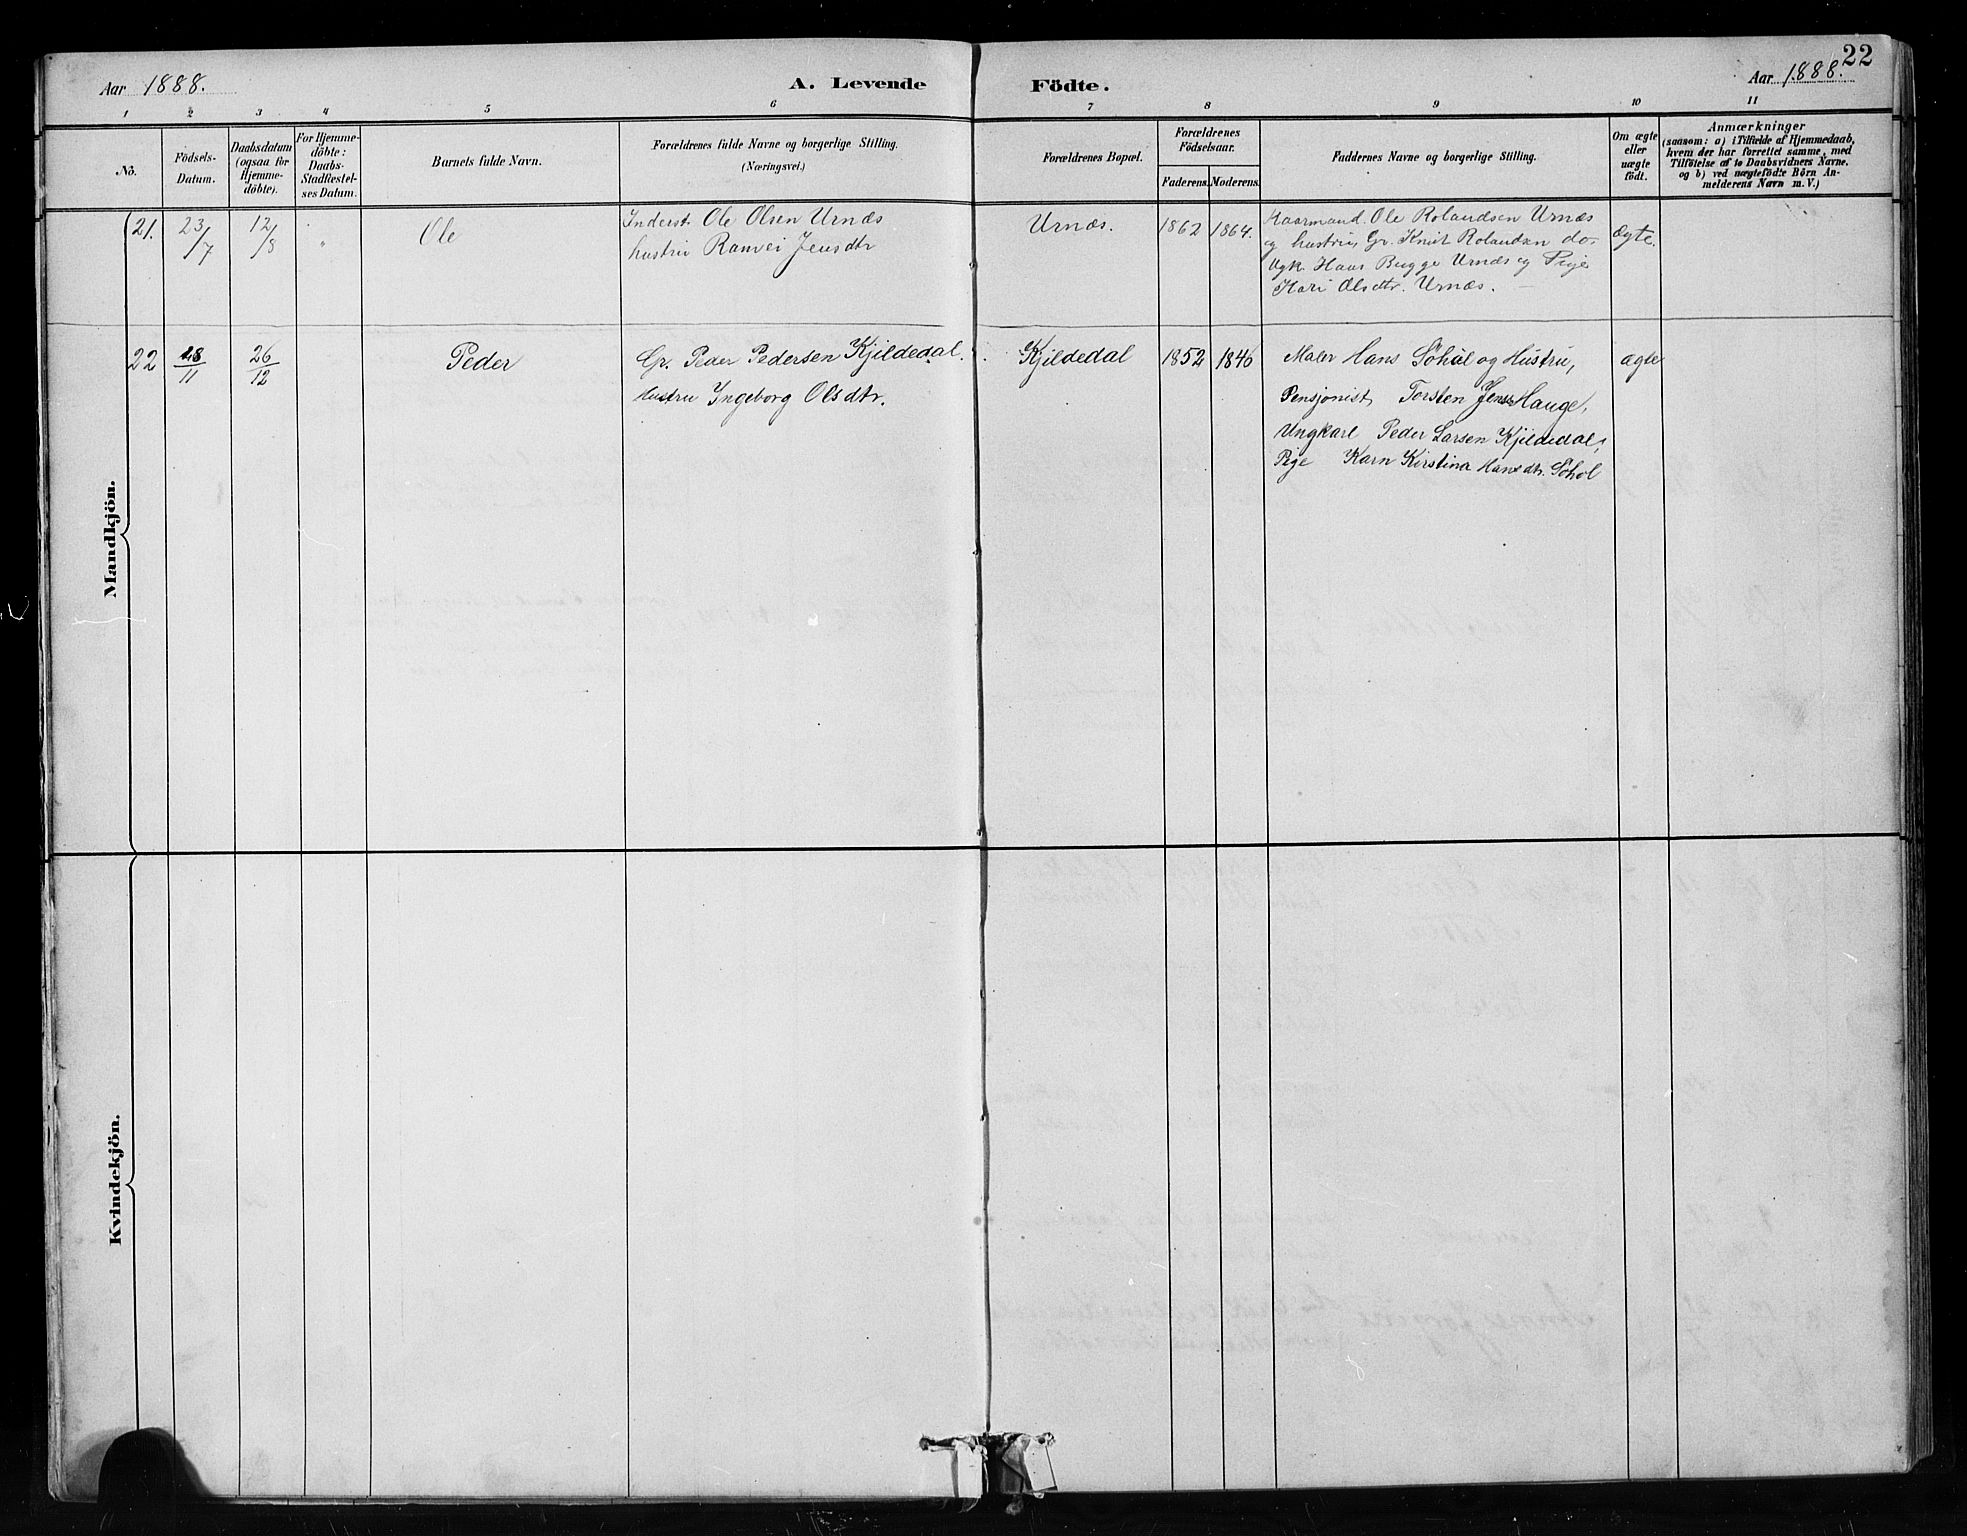 22
Aar 1888.
A. Levende Födte.
Aar 1888.
1 2 3 4 5 6 7 8 9 10 11
No.
Födsels-Datum.
Daabsdatum (ogsaa for Hjemme-döbte).
For Hjemme-döbte: Daabs-Stadfæstel-ses Datum.
Barnets fulde Navn.
Forældrenes fulde Navne og borgerlige Stilling.
(Næringsvei.)
Forældrenes Bopæl.
Forældrenes Födselsaar.
Faderens. Moderens.
Faddernes Navne og borgerlige Stilling.
Om ægte eller uægte födt.
Anmærkninger
(saasom: a) i Tilfælde af Hjemmedaab,
hvem der har forrettet samme, med
Tilföielse af to Daabsvidners Navne.
og b) ved uægtefödte Börn An-
melderens Navn m. V.)
Mandkjön.
21. 23/7 12/8 " Ole
Inderst Ole Olsen Urnæs
hustru Ranvei Jensdtr
Urnæs. 1862 1864.
Haarmand Ole Rolandsen Urnæs
og hustru, Gr. Knut Rolandsen do.
Ugk. Hans Bugge Urnæs og Pige
Kari Olsdtr. Urnæs.
Ægte.
22 18/11 26/12 Peder
Gr. Peder Pedersen Kjildedal.
Hustru Ingeborg Olsdtr.
Kjildedal 1852 1846
Maler Hans Söhol og Hustru,
Pensjonist Torsten Jens Hauge,
Ungkarl Peder Larsen Kjildedal,
Pige Karn Kirstina Hansdtr. Söhol
ægte
Kvindekjön.